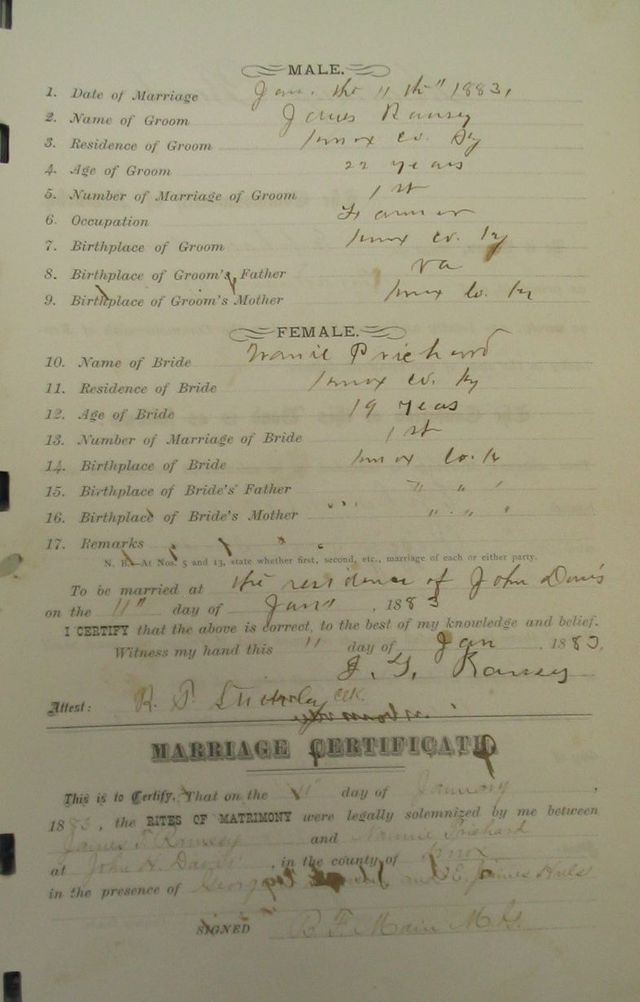 MALE.
1. Date of Marriage Jan. the 11th" 1883,
2. Name of Groom James Ramsey
3. Residence of Groom Knox Co. Ky
4. Age of Groom 22 years
5. Number of Marriage of Groom 1st
6. Occupation Farmer
7. Birthplace of Groom Knox Co. Ky
8. Birthplace of Groom's Father Va
9. Birthplace of Groom's Mother Knox Co. Ky
FEMALE.
10. Name of Bride Nannie Prichard
11. Residence of Bride Knox Co. Ky
12. Age of Bride 19 years
13. Number of Marriage of Bride 1st
14. Birthplace of Bride Knox Co. K
15. Birthplace of Bride's Father " " "
16. Birthplace of Bride's Mother " " "
17. Remarks
N. B.—At Nos. 5 and 13, state whether first, second, etc., marriage of each or either party.
To be married at the residence of John Davis
on the 11" day of Jany, 1883
I CERTIFY that the above is correct, to the best of my knowledge and belief.
Witness my hand this 11 day of Jan 1883.
Ramsey
Attest: R. Clk.
MARRIAGE CERTIFICATE
This is to Certify, That on the 11" day of January,
1883, the RITES OF MATRIMONY were legally solemnized by me between
James F. Ramsey and Nannie Prichard
at John H. Davis, in the county of Knox
in the presence of George and James
SIGNED B. F. Main M. G.